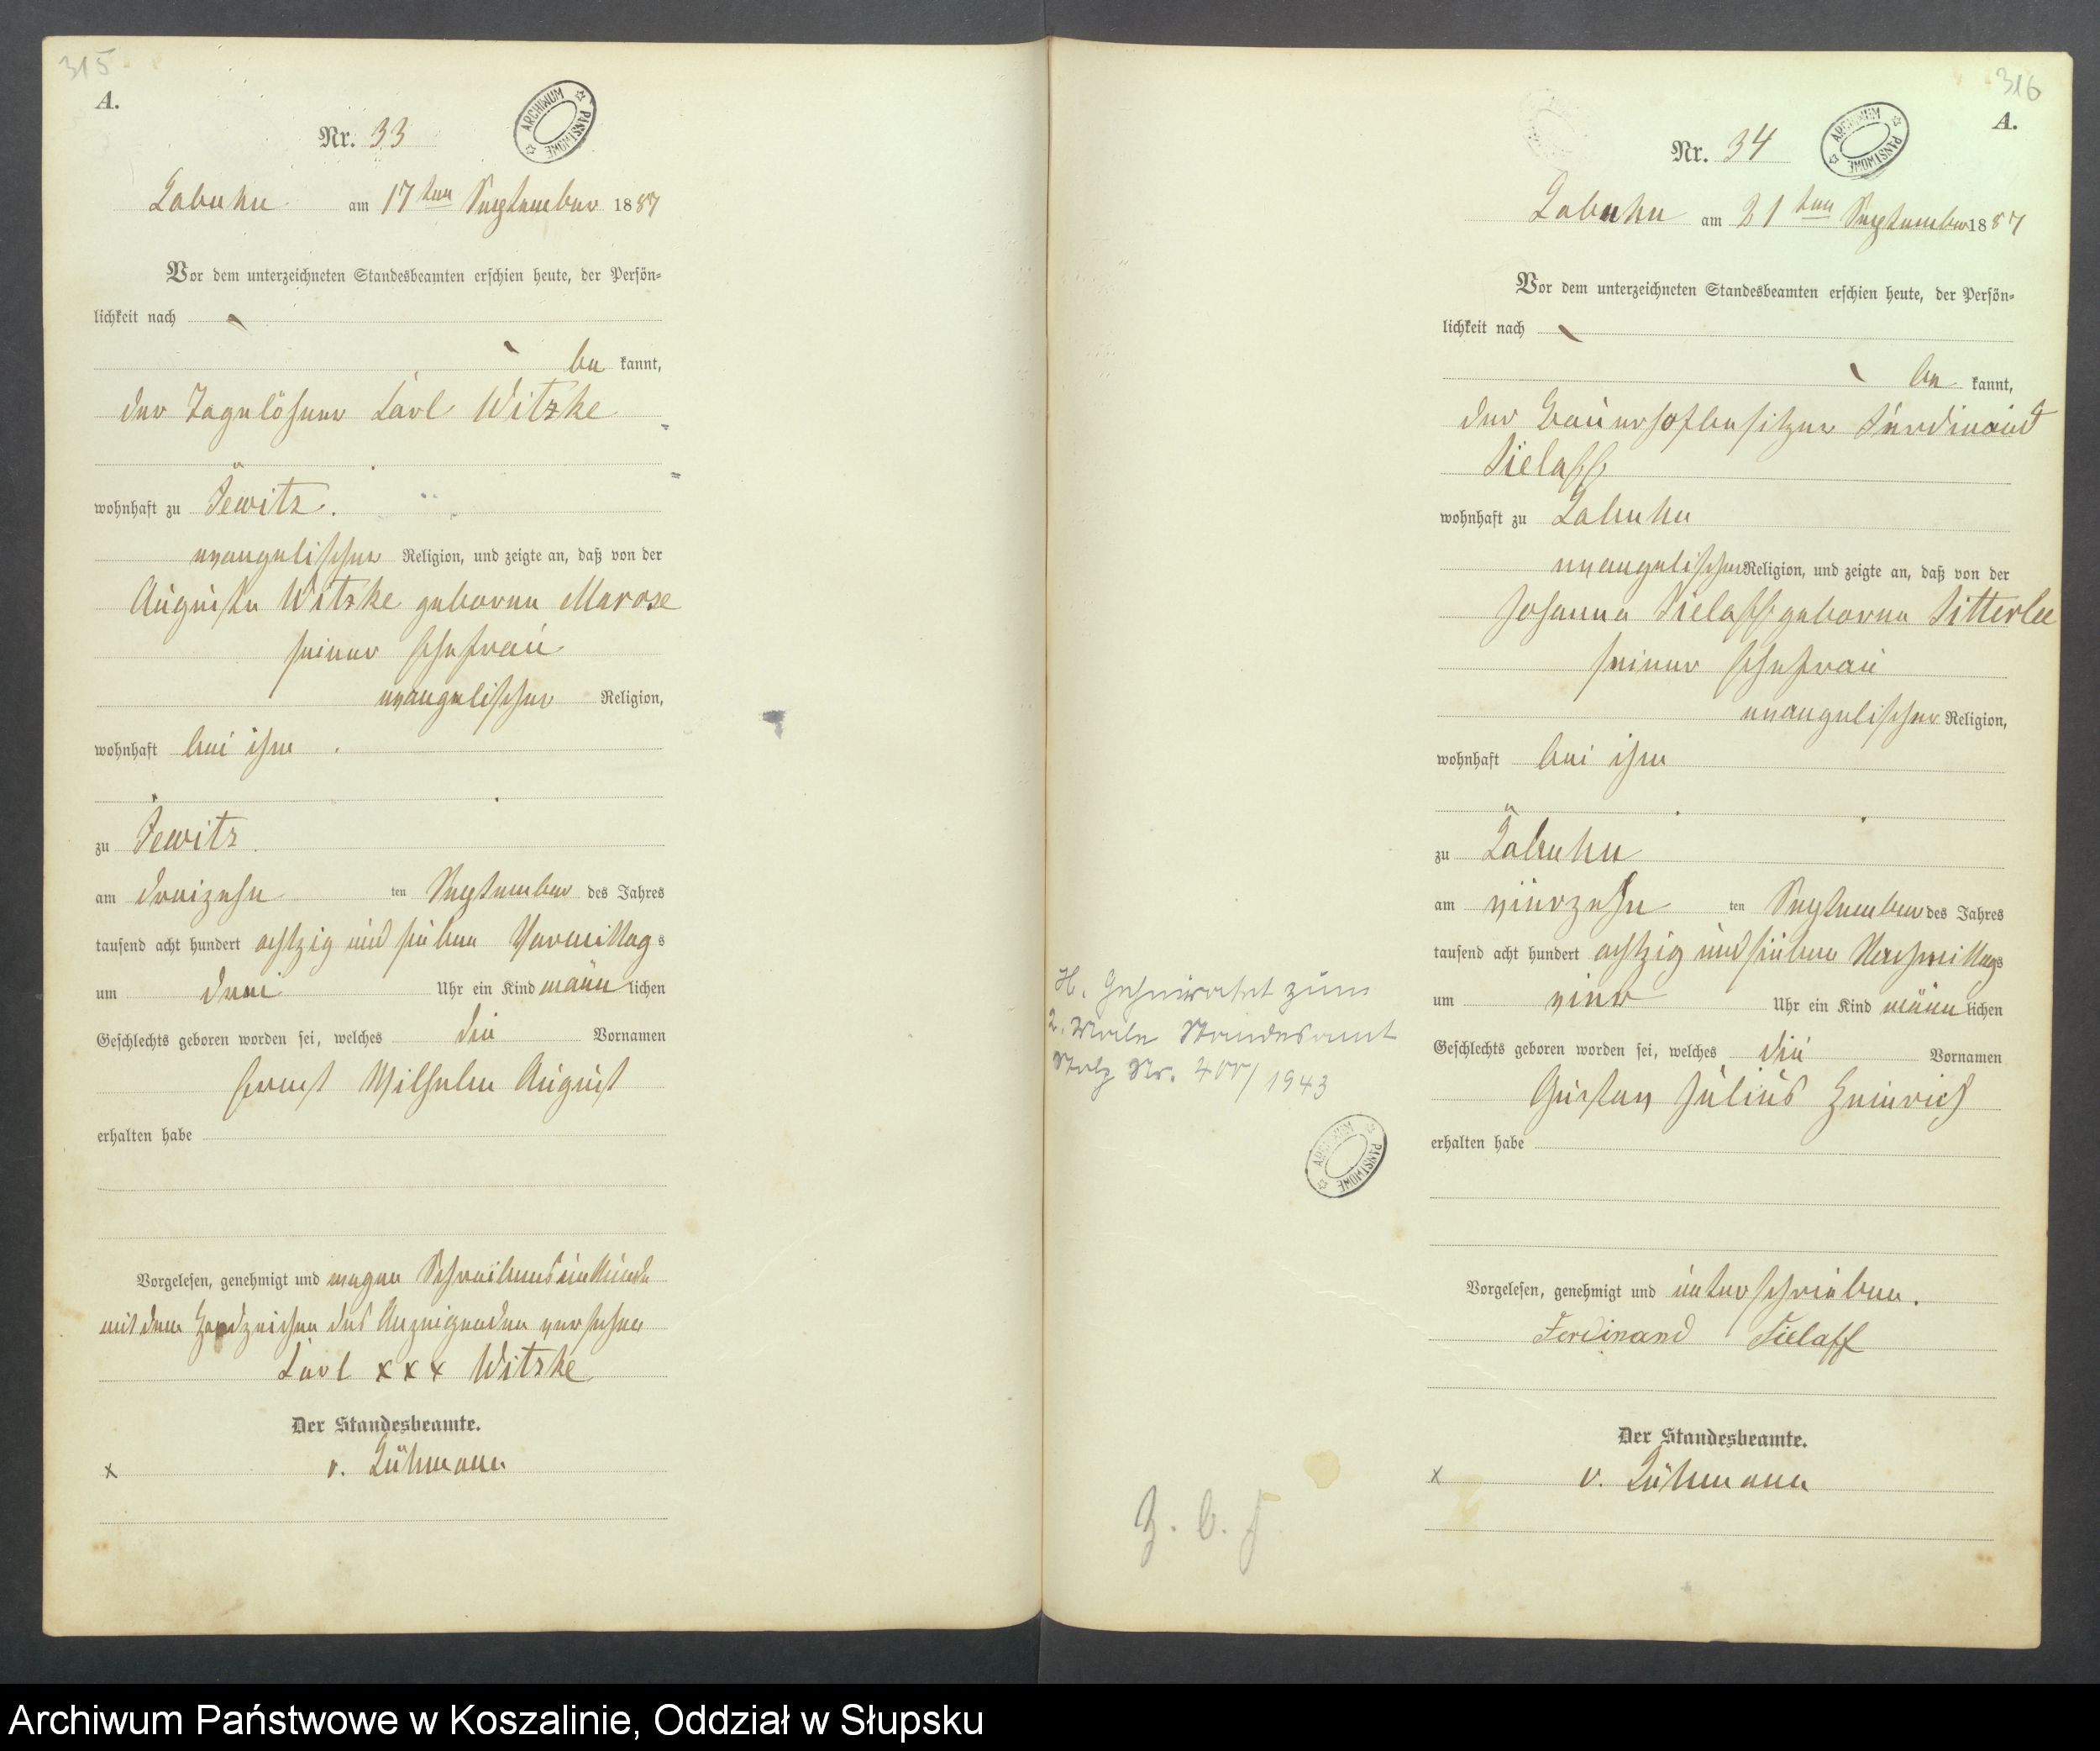 315
A.
ARCHIWUM PAŃSTWOWE
Nr. 33
Labuhn am 17ten September 1887
Vor dem unterzeichneten Standesbeamten erschien heute, der Persön-
lichkeit nach
be kannt,
der Tagelöhner Carl Witzke
wohnhaft zu Jewitz.
evangelischer Religion, und zeigte an, daß von der
Auguste Witzke geborne Marose
seiner Ehefrau
evangelischer Religion,
wohnhaft bei ihm
zu Jewitz
am dreizehn ten September des Jahres
tausend acht hundert achtzig und sieben Vormittags
um drei Uhr ein Kind männlichen
Geschlechts geboren worden sei, welches die Vornamen
Ernst Wilhelm August
erhalten habe
Vorgelesen, genehmigt und wegen Schreibensunkunde
mit dem Handzeichen des Anzeigenden versehen
Carl x x x Witzke
Der Standesbeamte.
x v. Lühmann
316
A.
ARCHIWUM PAŃSTWOWE
Nr. 34
Labuhn am 21ten September 1887
Vor dem unterzeichneten Standesbeamten erschien heute, der Persön-
lichkeit nach
be kannt,
der Bauerhofbesitzer Ferdinand
Sielaff
wohnhaft zu Labuhn
evangelischer Religion, und zeigte an, daß von der
Johanna Sielaff geborne Sitterlee
seiner Ehefrau
evangelischer Religion,
wohnhaft bei ihm
zu Labuhn
am vierzehn ten September des Jahres
tausend acht hundert achtzig und sieben Nachmittags
um vier Uhr ein Kind männlichen
Geschlechts geboren worden sei, welches die Vornamen
Gustav Julius Heinrich
erhalten habe
H. Geheiratet zum
2. Male Standesamt
Stolp Nr. 400/1943
ARCHIWUM PAŃSTWOWE
Vorgelesen, genehmigt und unterschrieben.
Ferdinand Sielaff
Der Standesbeamte.
x v. Lühmann
Archiwum Państwowe w Koszalinie, Oddział w Słupsku